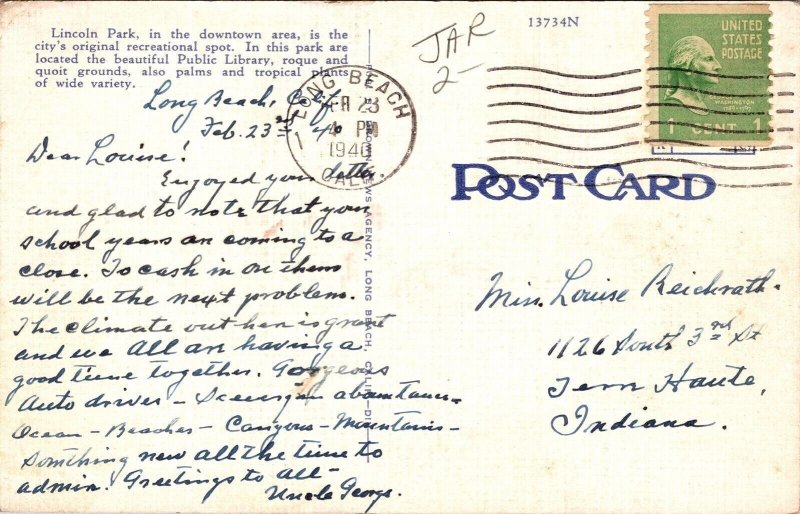 Lincoln Park, in the downtown area, is the
city's original recreational spot. In this park are
located the beautiful Public Library, roque and
quoit grounds, also palms and tropical plants
of wide variety.
Long Beach, Calif.
Feb. 23rd 40
Dear Louise!
Enjoyed your letter.
and glad to note that your
school years are coming to a
close. To cash in on them
will be the next problem.
The climate out here is great
and we All are having a
good time together. Gorgeous
Auto drives - Scenery in abundance -
Ocean - Beaches - Canyons - Mountains -
Something new all the time to
admire. Greetings to all -
Uncle George.
NEWS AGENCY, LONG BEACH, CALIF.
LONG BEACH
CALIF
FEB 23
4 PM
1940
JAR
2-
13734N
UNITED
STATES
POSTAGE
WASHINGTON
1 CENT 1
POST CARD
Miss. Louise Reichrath.
1126 South 3rd St
Terre Haute,
Indiana.